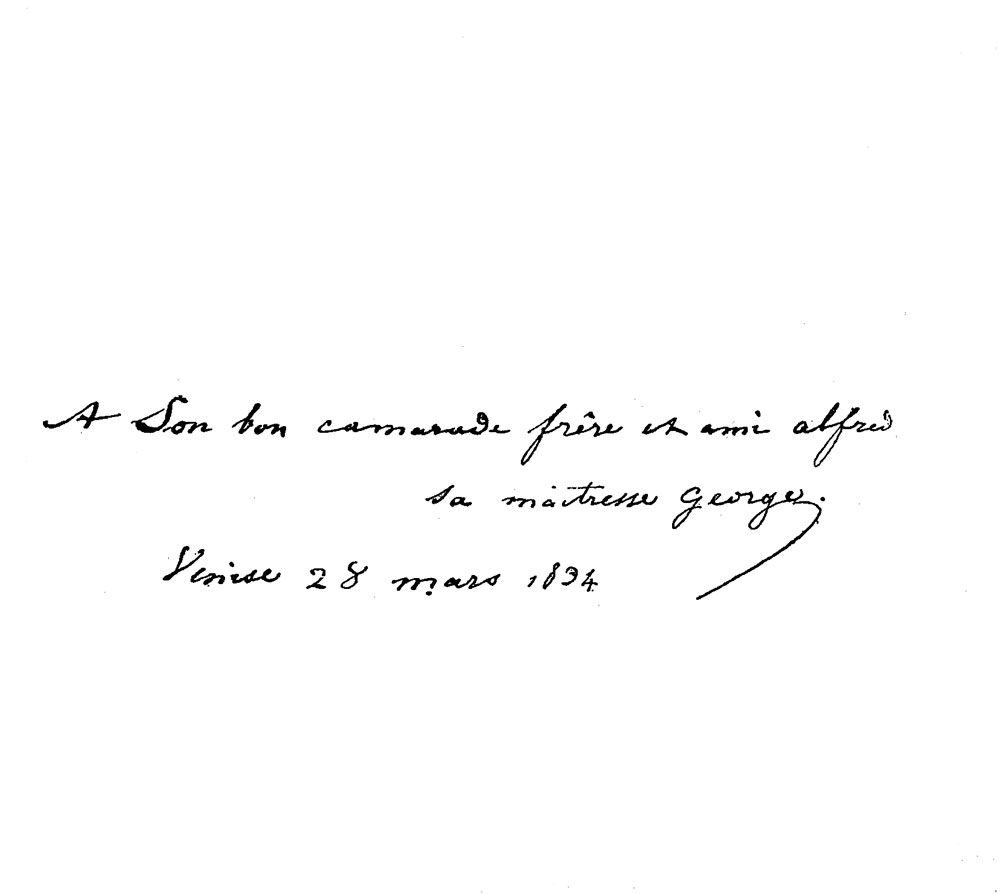 A Son bon camarade frère et ami alfred
sa maîtresse George.
Venise 28 mars 1834